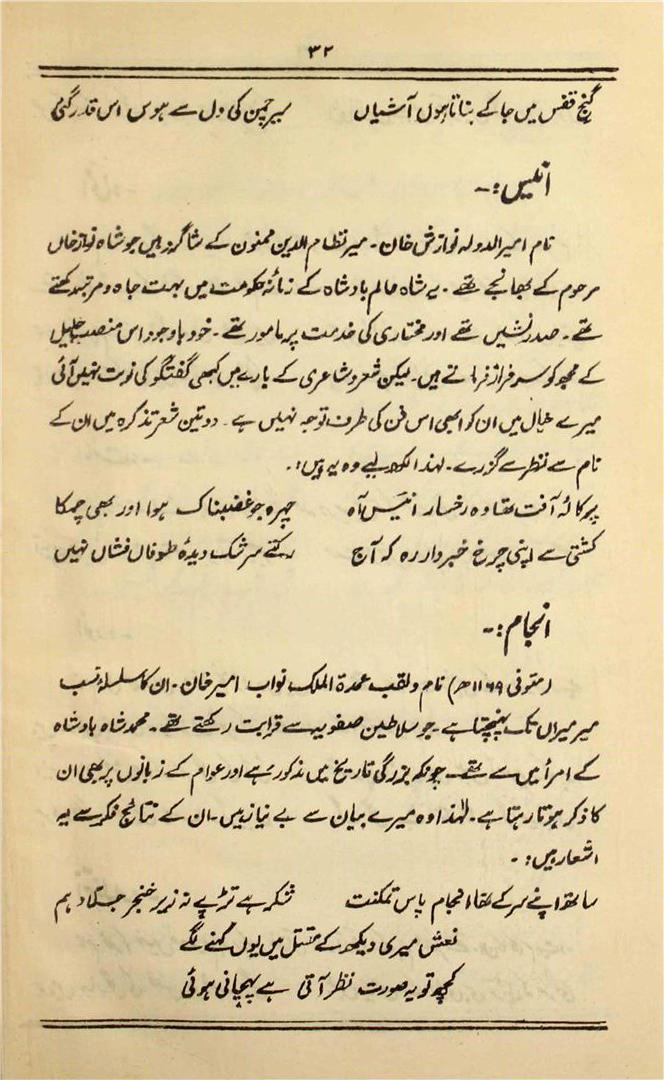 ۳۲
گنج قفس میں جا کے بناتا ہوں آشیاں سیر چمن کی دل سے ہوس اس قدر گئی
انیس :۔
نام امیر الدولہ نوازش خان ۔ میر نظام الدین ممنون کے شاگرد ہیں جو شاہ نواز خاں
مرحوم کے بھانجے تھے ۔ یہ شاہ عالم بادشاہ کے زمانۂ حکومت میں بہت جاہ و مرتبہ رکھتے
تھے ۔ صدر نشیں تھے اور مختاری کی خدمت پر مامور تھے ۔ خود باوجود اس منصب جلیل
کے مجھ کو سرفراز فرماتے ہیں ۔ لیکن شعر و شاعری کے بارے میں کبھی گفتگو کی نوبت نہیں آئی
میرے خیال میں ان کو ابھی اس فن کی طرف توجہ نہیں ہے ۔ دو تین شعر تذکرہ میں ان کے
نام سے نظر سے گزرے ۔ لہذا لکھ لیے وہ یہ ہیں :۔
پرکالۂ آفت تھا وہ رخسار انیسؔ آہ چہرہ جو غضبناک ہوا اور بھی چمکا
کشتی سے اپنی چرخ خبردار رہ کہ آج رکتے سرشک دیدۂ طوفاں فشاں نہیں
انجام :۔
(متوفی ۱۱۶۹ھ) نام و لقب عمدۃ الملک نواب امیر خان ۔ ان کا سلسلۂ نسب
میر میراں تک پہنچتا ہے ۔ جو سلاطین صفویہ سے قرابت رکھتے تھے ۔ محمد شاہ بادشاہ
کے امرأ میں سے تھے ۔ چونکہ بزرگی تاریخ میں مذکور ہے اور عوام کے زبانوں پر بھی ان
کا ذکر ہوتا رہتا ہے ۔ لہٰذا وہ میرے بیان سے بے نیاز ہیں ۔ ان کے نتائج فکر سے یہ
اشعار ہیں :۔
ساتھ اپنے سر کے تھا انجام پاس تمکنت شکر ہے تڑپے نہ زیر خنجر جلاد ہم
نعش میری دیکھ کے مقتل میں یوں کہنے لگے
کچھ تو یہ صورت نظر آتی ہے پہچانی ہوئی